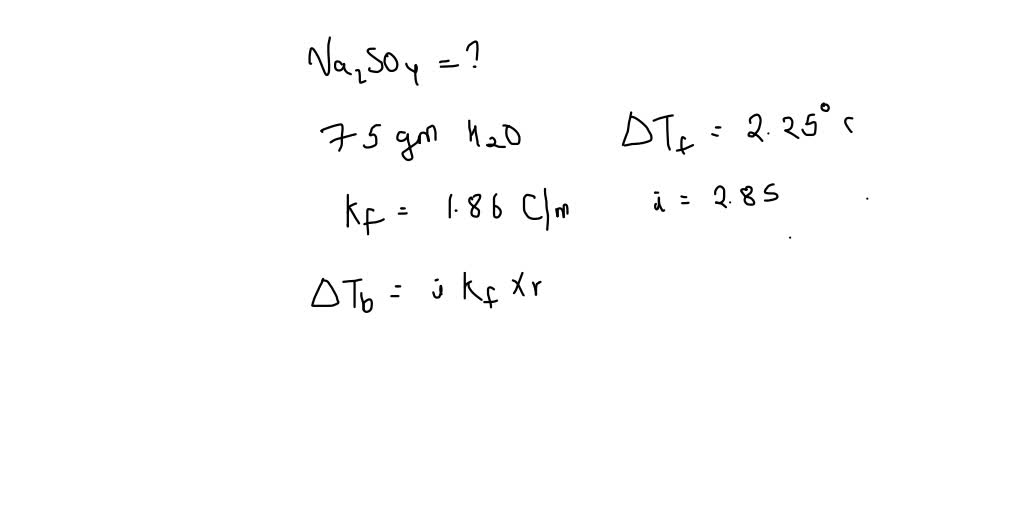 Na₂SO₄ = ?
75 gm H₂O
ΔTf = 2.25° c
Kf = 1.86 C/m
i = 2.85
ΔTb = i Kf x r